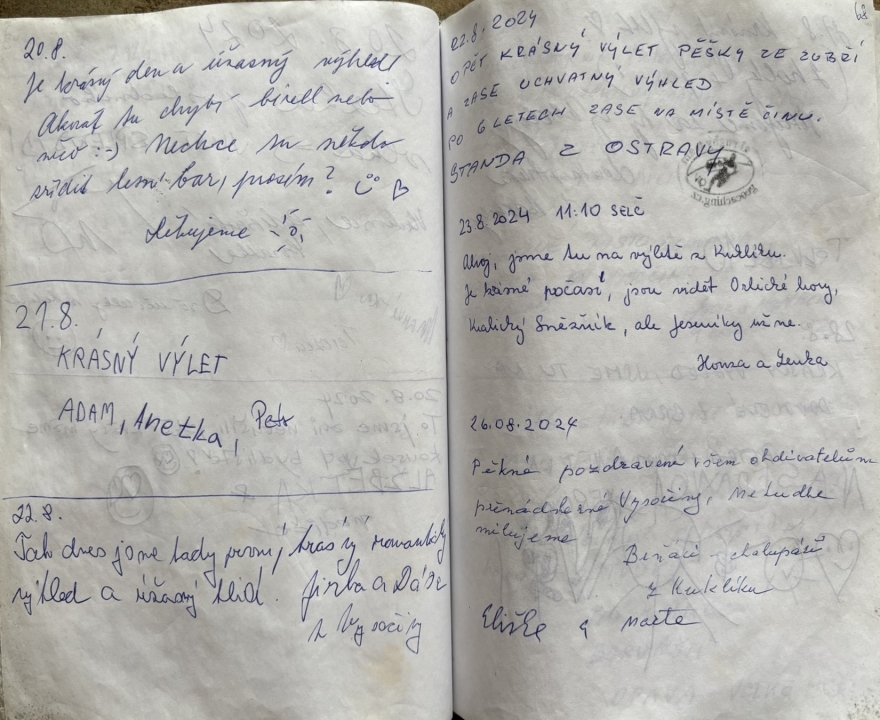 20.8.
Je krásný den a úžasný výhled
Akorát tu chybí birell nebo
něco :-) Nechce tu někdo
zřídit lesní bar, prosím?
Děkujeme
21.8.
KRÁSNÝ VÝLET
ADAM, Anetka, Petr
22.8.
Tak dnes jsme tady první, krásný romantický
výhled a úžasný klid. Jirka a Dáša
z Vysočiny
68
22.8.2024
OPĚT KRÁSNÝ VÝLET PĚŠKY ZE ZUBŘÍ
A ZASE UCHVATNÝ VÝHLED
PO 6 LETECH ZASE NA MÍSTĚ ČINU.
STANDA Z OSTRAVY
23.8.2024 11:10 SELČ
Ahoj, jsme tu na výletě z Kuklíku.
Je krásné počasí, jsou vidět Orlické hory,
Kralický Sněžník, ale Jeseníky už ne.
Honza a Lenka
26.08.2024
Pěkné pozdravení všem obdivatelům
překrásné Vysočiny,
milujeme
chalupáři
z Kuklíku
Eliška a